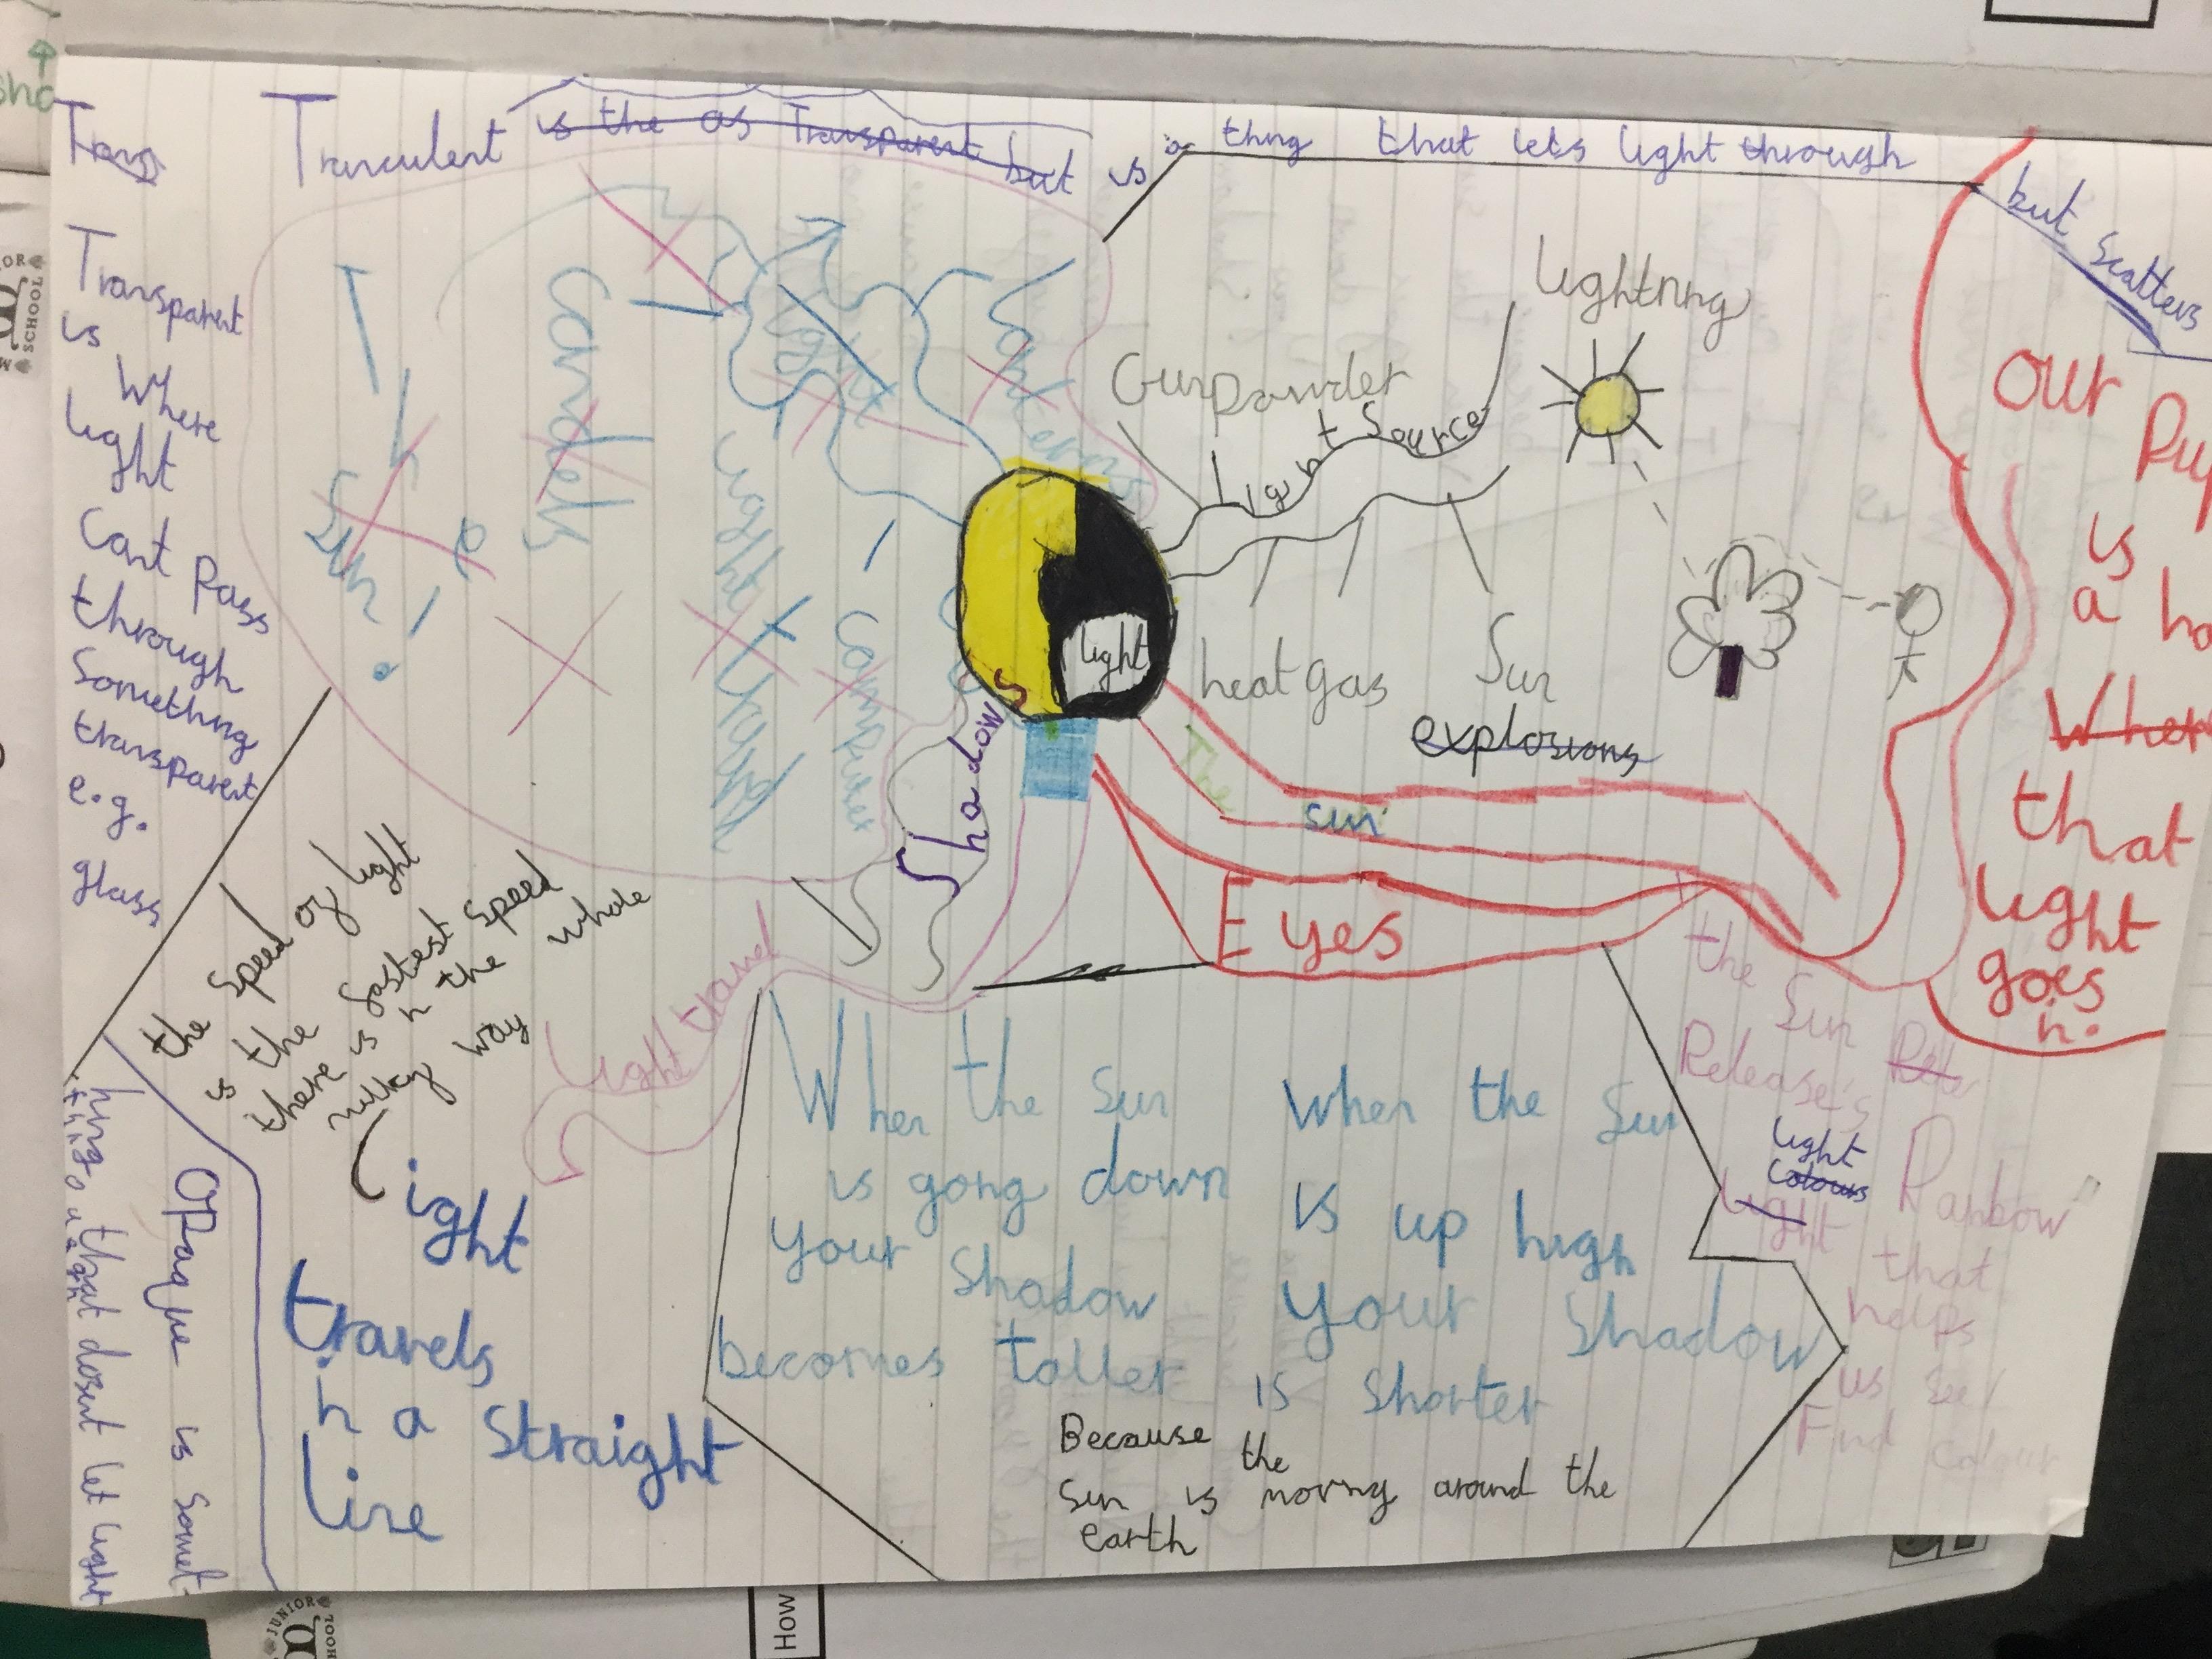 Trans
Truculent is the as Transparent but is a thing that lets light through
but scatters
Transparent
is
Where
light
Cant Pass
through
Something
transparent
e.g.
glass
the speed of light
is the fastest speed
there is in the whole
milky way
OPaque is Somet-
hing that dosent let light
light
travels
in a straight
line
Candels
Sun
Light travel
Computer
Lanterns
Shadows
light
Light Source
Gunpowder
Lightning
heat gas
Sun
explosions
The
sun
Eyes
Light travel
When the Sun
is going down
your Shadow
becomes taller
When the Sun
is up high
your Shadow
is shorter
Because the
Sun is moving around the
earth
the Sun
Release's
light
Colours
Light
Rainbow
that
helps
us see
Find colour
Our Pu
is
a ho
Wher
that
light
goes
in.
sho
JUNIOR
SCHOOL
How